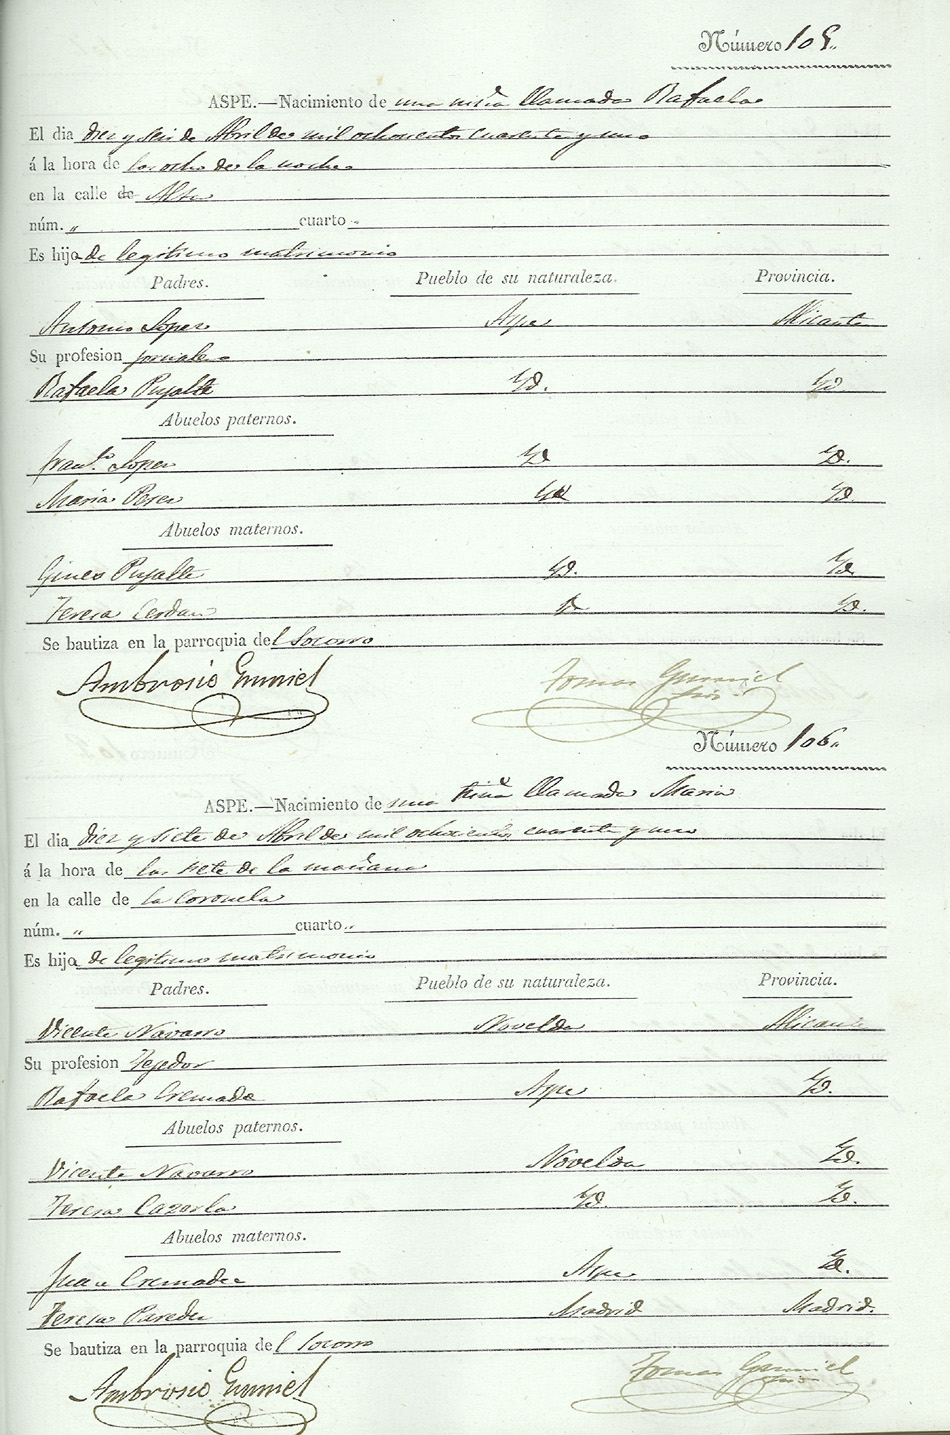 Número 105„
ASPE.—Nacimiento de una niña llamada Rafaela
El dia diez y seis de Abril de mil ochocientos cuarenta y uno
á la hora de las ocho de la noche
en la calle de Alta
núm. „ cuarto „
Es hijo de legitimo matrimonio
Padres. Pueblo de su naturaleza. Provincia.
Antonio Lopez Aspe Alicante
Su profesion jornalero
Rafaela Pujalte Yd. Yd
Abuelos paternos.
Franco. Lopez Yd Yd.
Maria Perez Yd Yd
Abuelos maternos.
Gines Pujalte Yd. Yd
Teresa Cerdan Yd.
Se bautiza en la parroquia del Socorro
Ambrosio Gumiel Tomas Gumiel
Número 106„
ASPE.—Nacimiento de una niña llamada Maria
El dia diez y siete de Abril de mil ochocientos cuarenta y uno
á la hora de las siete de la mañana
en la calle de la Coronela
núm. „ cuarto „
Es hijo de legitimo matrimonio
Padres. Pueblo de su naturaleza. Provincia.
Vicente Navarro Novelda Alicante
Su profesion Tejedor
Rafaela Cremades Aspe Yd.
Abuelos paternos.
Vicente Navarro Novelda Yd.
Teresa Cazorla Yd. Yd.
Abuelos maternos.
Juan Cremades Aspe Yd.
Teresa Paredes Madrid Madrid.
Se bautiza en la parroquia del Socorro
Ambrosio Gumiel Tomas Gumiel